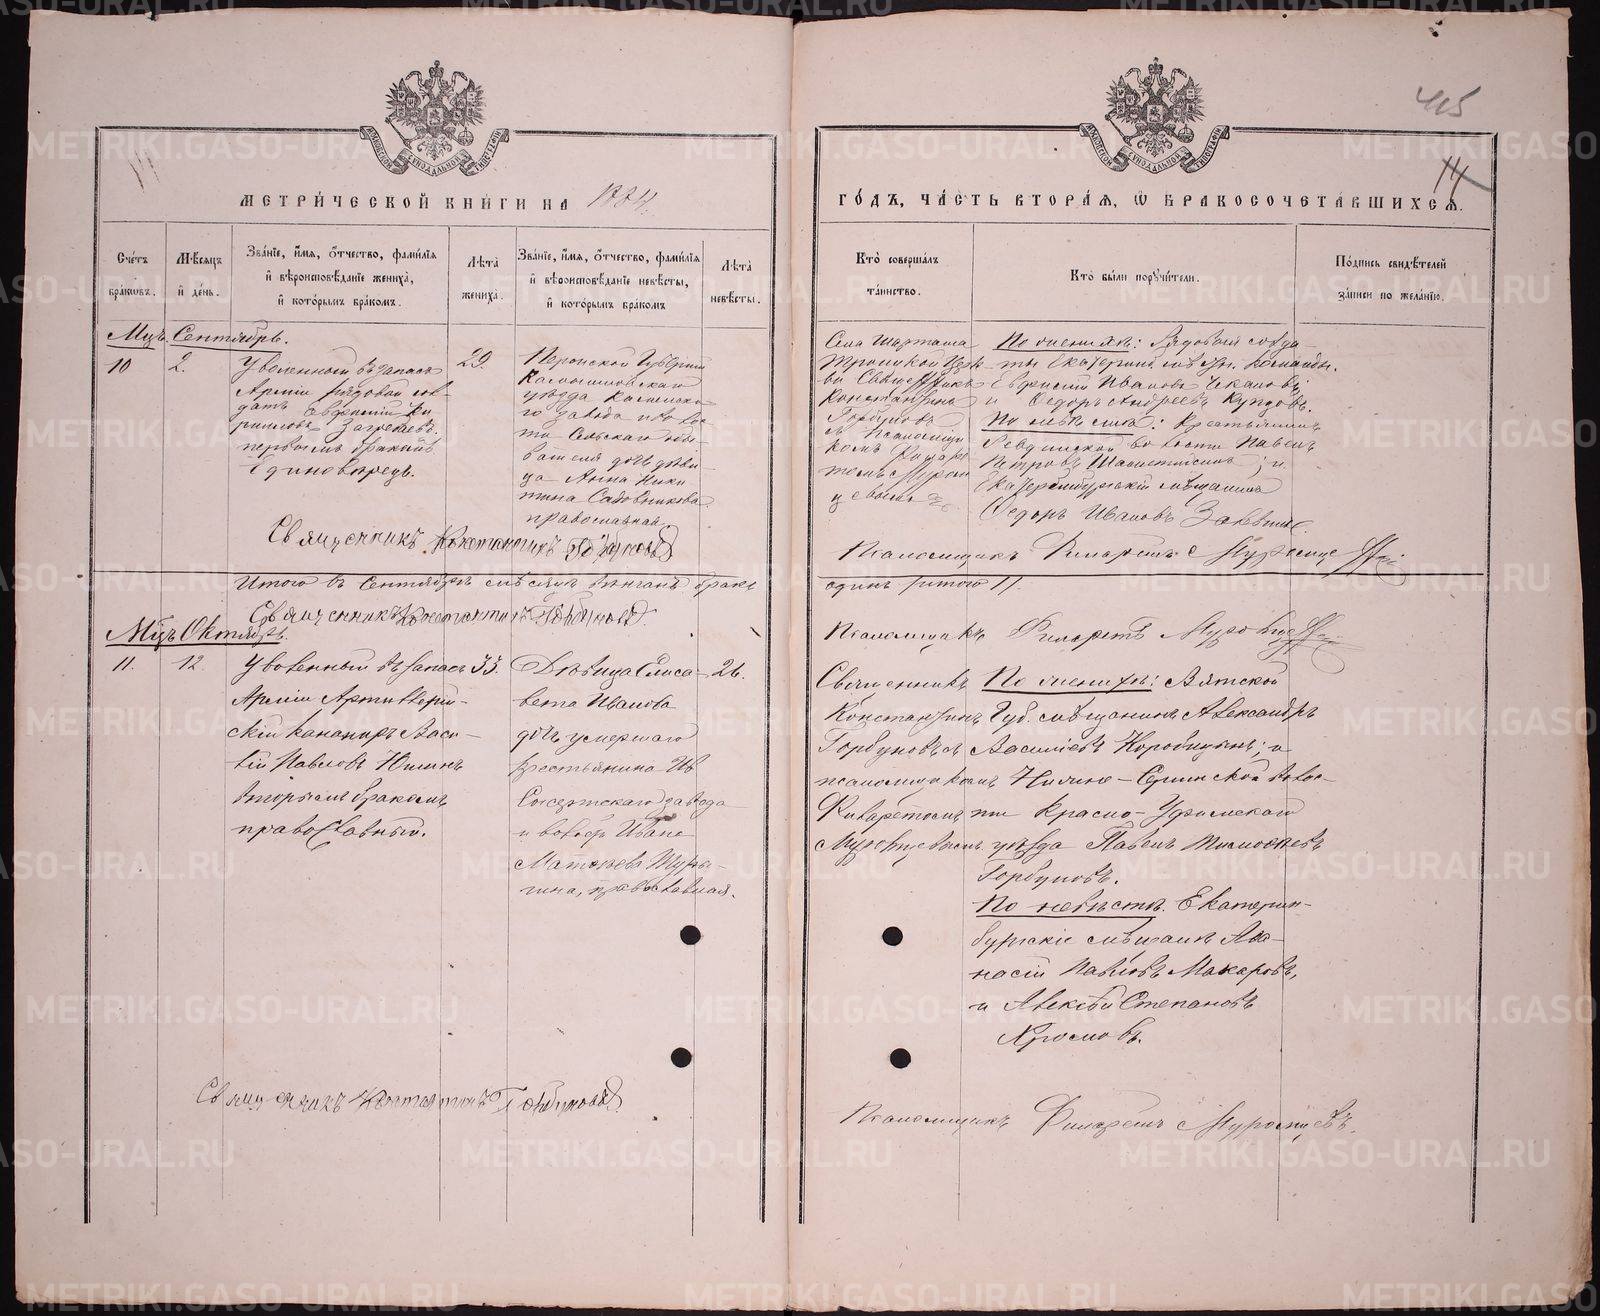 415
14
МЕТРИ́ЧЕСКОЙ КНИ́ГИ НА 1884.
ГО́ДЪ, ЧА́СТЬ ВТОРА́Я, Ѡ БРАКОСОЧЕТА́ВШИХСЯ.
Сче́тъ бра́ковъ.
Мѣ́сяцъ и҆ де́нь.
Зва́нїе, и҆́мя, ѻ҆́тчество, фами́лїя
и҆ вѣроисповѣ́данїе жениха̀,
и҆ кото́рымъ бра́комъ.
Лѣ́та жениха̀.
Зва́нїе, и҆́мя, ѻ҆́тчество, фами́лїя
и҆ вѣроисповѣ́данїе невѣ́сты,
и҆ кото́рымъ бра́комъ
Лѣ́та невѣ́сты.
Кто̀ соверша́лъ та́инство.
Кто̀ бы́ли порꙋчи́тели.
По́дпись свидѣ́телей за́писи по жела́нїю.
Мцъ. Сентябрь.
10
2.
Уволенный въ запасъ
Арміи рядовой сол-
датъ Евфимій Ки
рилловъ
первымъ бракомъ
Единовѣрецъ.
29.
Пермской Губерніи
Камышловскаго
уѣзда Каменска-
го завода и волос
ти Сельскаго обы-
вателя дочь дѣви-
ца Анна Ники
тина Садовникова
православная.
Села Шарташа
Троицкой Церк
ви Священникъ
Константинъ
Горбуновъ
съ Псаломщи
комъ Филаре
томъ Муром
цевымъ
По женихѣ: Рядовые солда-
ты Екатеринб. мѣстн. команды.
Евфимій Ивановъ Чекановъ;
и Ѳедоръ Андреевъ Купцовъ.
По невѣстѣ: Крестьянинъ
Ревдинской волости Павелъ
Петровъ и
Екатеринбургскій мѣщанинъ
Ѳедоръ Ивановъ
Священникъ Константинъ Горбуновъ
Псаломщикъ Филаретъ Муромцевъ
Итого въ Сентябрѣ мѣсяцѣ вѣнчанъ бракъ
одинъ /итого 1/.
Священникъ Константинъ Горбуновъ.
Псаломщикъ Филаретъ Муромцевъ
Мцъ Октябрь.
11.
12.
Уволенный въ запасъ
Арміи Артиллерій-
скій канониръ Васи-
лій Павловъ Юшинъ
вторымъ бракомъ
православный.
33.
Дѣвица Елиса-
вета Иванова
дочь умершаго
крестьянина Ни
Сысертскаго завода
и волости Ивана
Матвѣева Турыгина, православная.
26.
Священникъ
Константинъ
Горбуновъ съ
псаломщикомъ
Филаретомъ
Муромцевымъ
По женихѣ: Вятской
Губ. мѣщанинъ Александръ
Васильевъ Коробицынъ; и
Нижне-Сергинской волос-
ти Красно-Уфимскаго
уѣзда Павелъ Тимоѳеевъ
Горбуновъ.
По невѣстѣ. Екатерин-
бургскіе мѣщане Аѳа-
насій Павловъ Макаровъ,
и Алексѣй Степановъ
Священникъ Константинъ Горбуновъ
Псаломщикъ Филаретъ Муромцевъ.
METRIKI.GASO-URAL.RU